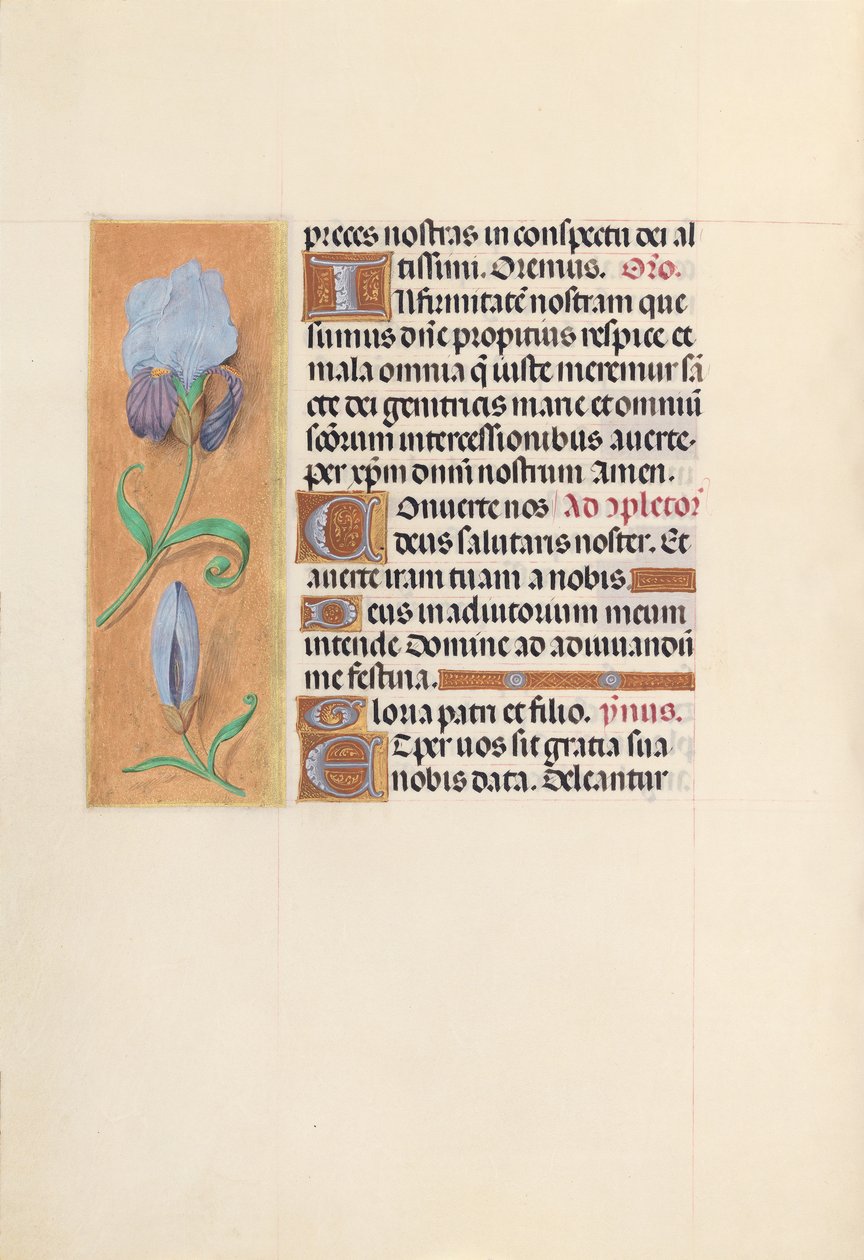 preces nostras in conspectu dei al
tissimi. Oremus. Oro̅.
Infirmitate̅ nostram que
sumus dn̅e propitius respice et
mala omnia q̅ iuste meremur sa̅
cte dei genitricis marie et omniu̅
sco̅rum intercessionibus auerte.
per xp̅m dnm̅ nostrum Amen.
Conuerte nos Ad ↄpletor̅
deus salutaris noster. Et
auerte iram tuam a nobis.
Deus in adiutorium meum
intende Domine ad adiuuandu̅
me festina.
Gloria patri et filio. ym̅nus.
Et per uos sit gratia sua
nobis data. Deleantur